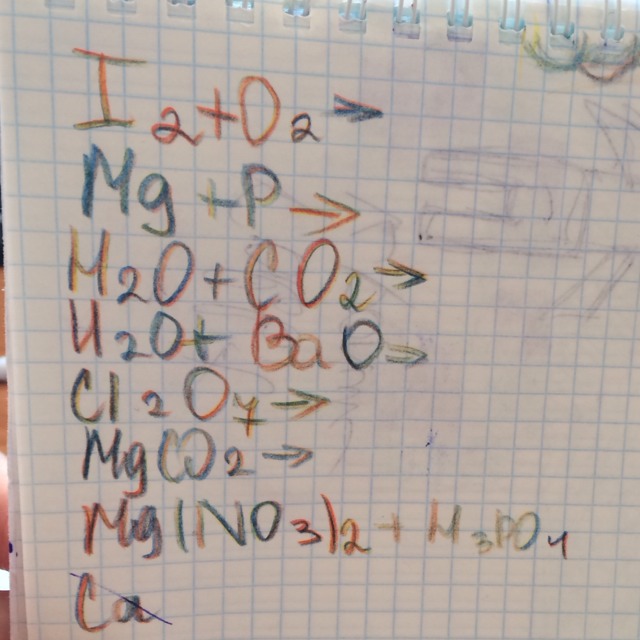 I2+O2→
Mg+P→
H2O+CO2→
H2O+BaO→
Cl2O7→
MgCO2→
Mg(NO3)2+H3PO4
Ca